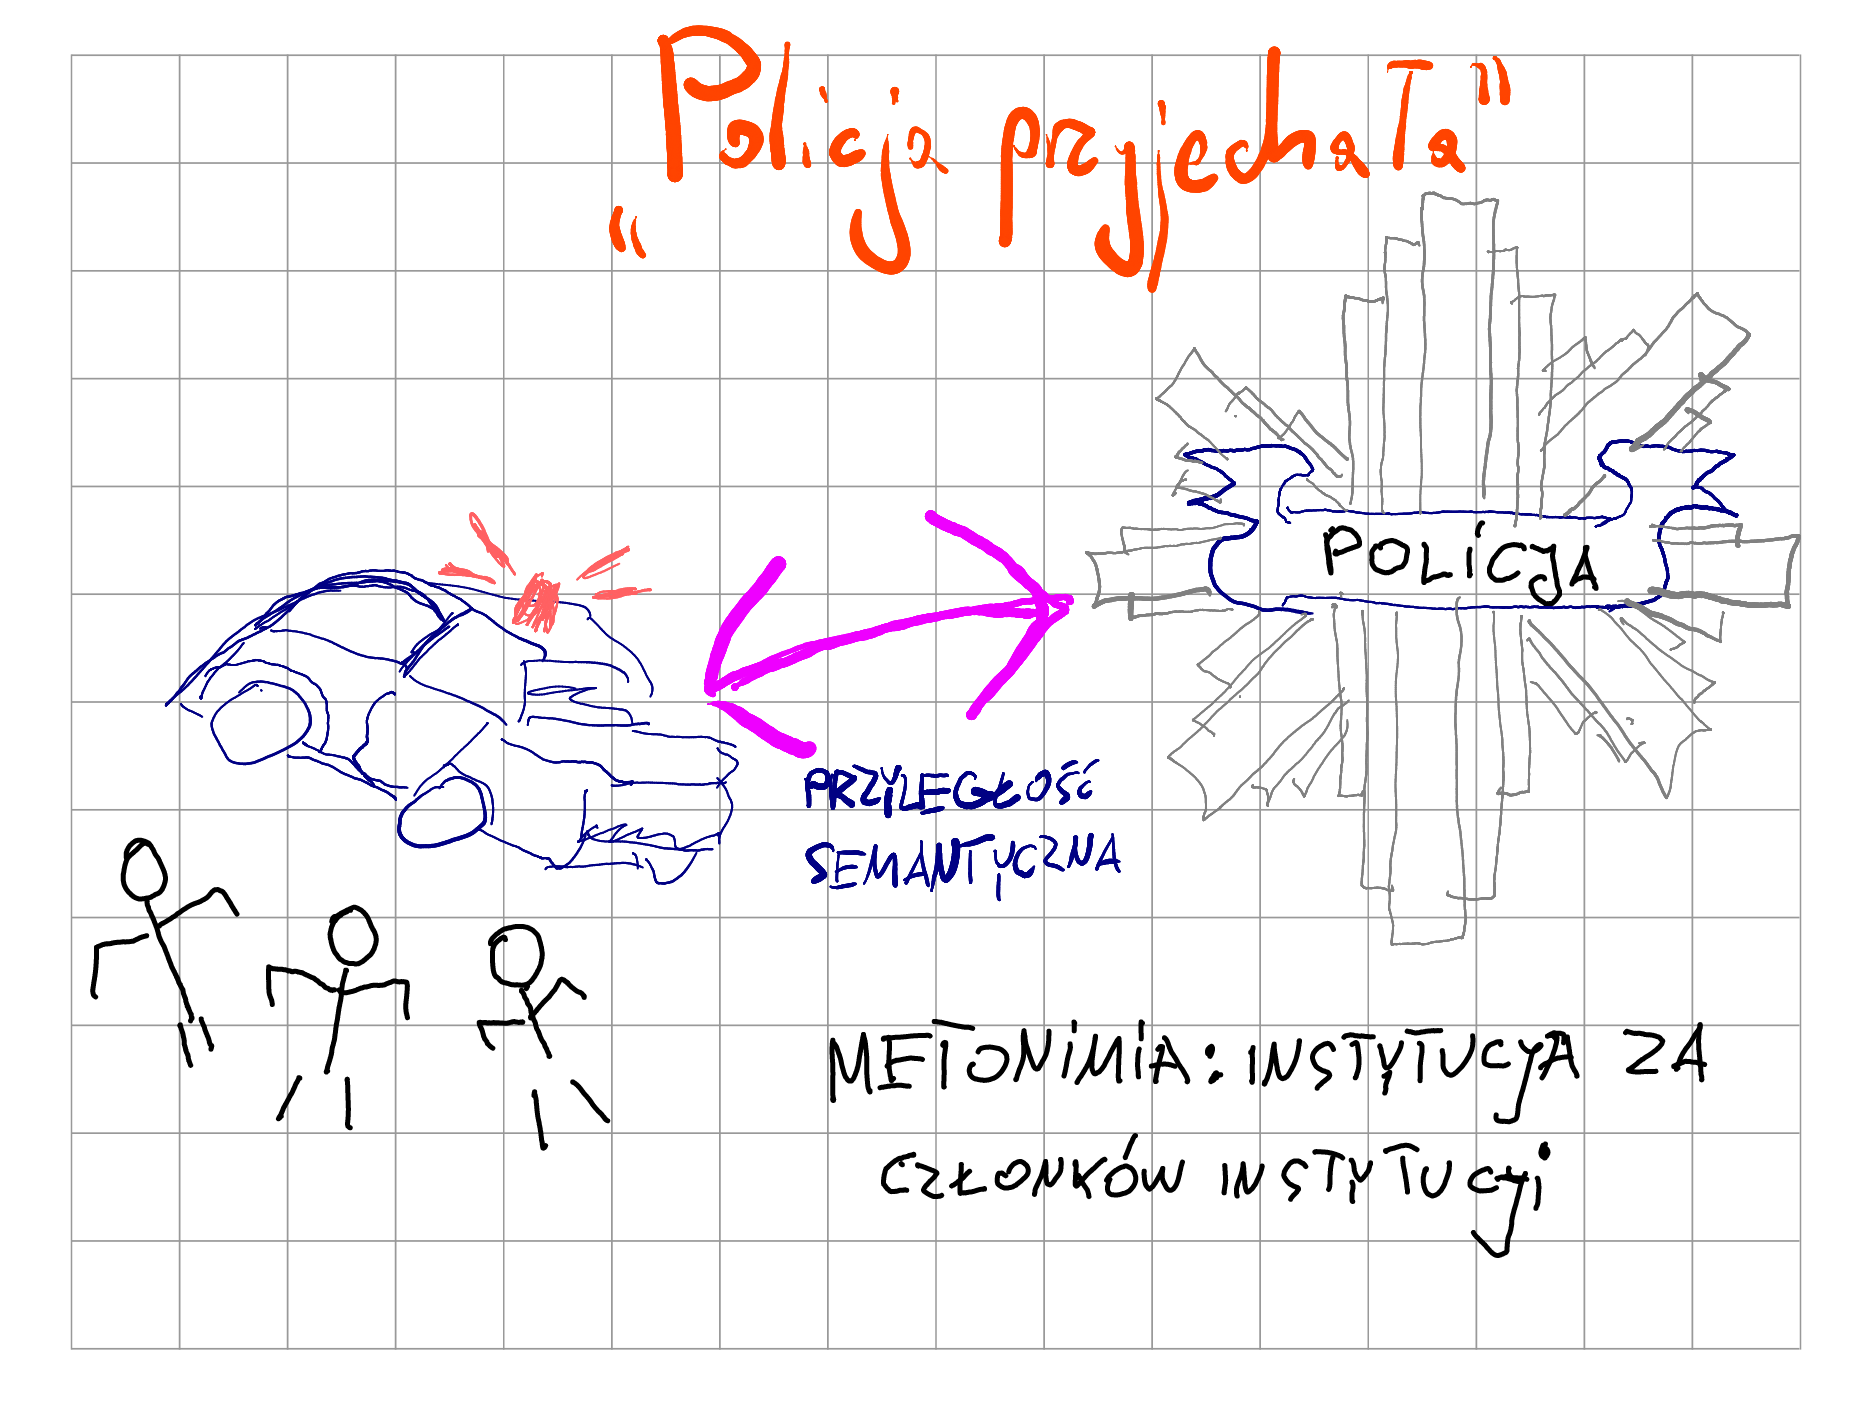 „Policja przyjechała"
POLICJA
PRZYLEGŁOŚĆ
SEMANTYCZNA
METONIMIA: INSTYTUCYJA ZA
CZŁONKÓW INSTYTUCYJI